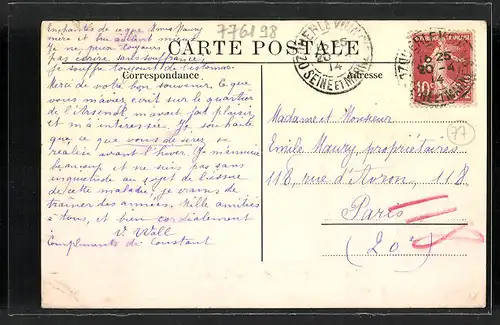 Enchantés de ce que Mme Maury
mère et bru aillent mieux.
Je ne peux toujours
pas écrire sans souffrance.
Je souffre toujours de l'estomac.
776198
CARTE POSTALE
Correspondance
Adresse
Merci de votre bon souvenir. Ce que
vous m'avez écrit sur le quartier
de l'Arsenal, m'avait fait plaisir
et m'a intéressée. Je souhaite
que, ce que vous désirez, se
réalise avant l'hiver. Je m'ennuie
beaucoup et ne suis pas sans
inquiétude au sujet de l'issue
de cette maladie, je crains de
traîner des années. Mille amitiés
à tous, et bien cordialement
V. Wall
Compliments de Constant
SEINE ET MARNE
16 25
20 - 4
10
77
Madame et Monsieur
Emile Maury, propriétaires
118, rue d'Avron, 118
Paris
(20e)